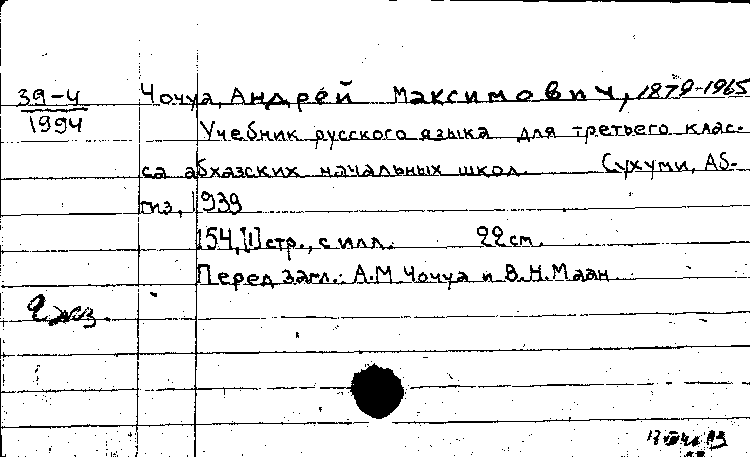 39-4
1994
Чочуа, Андрей Максимович, 1879-1965
Учебник русского языка для третьего клас-
са абхазских начальных школ. Сухуми, Аб-
гиз, 1939
154, [1] стр., с илл. 22 см.
Перед загл.: А.М. Чочуа и В.Н. Маан
2 экз.